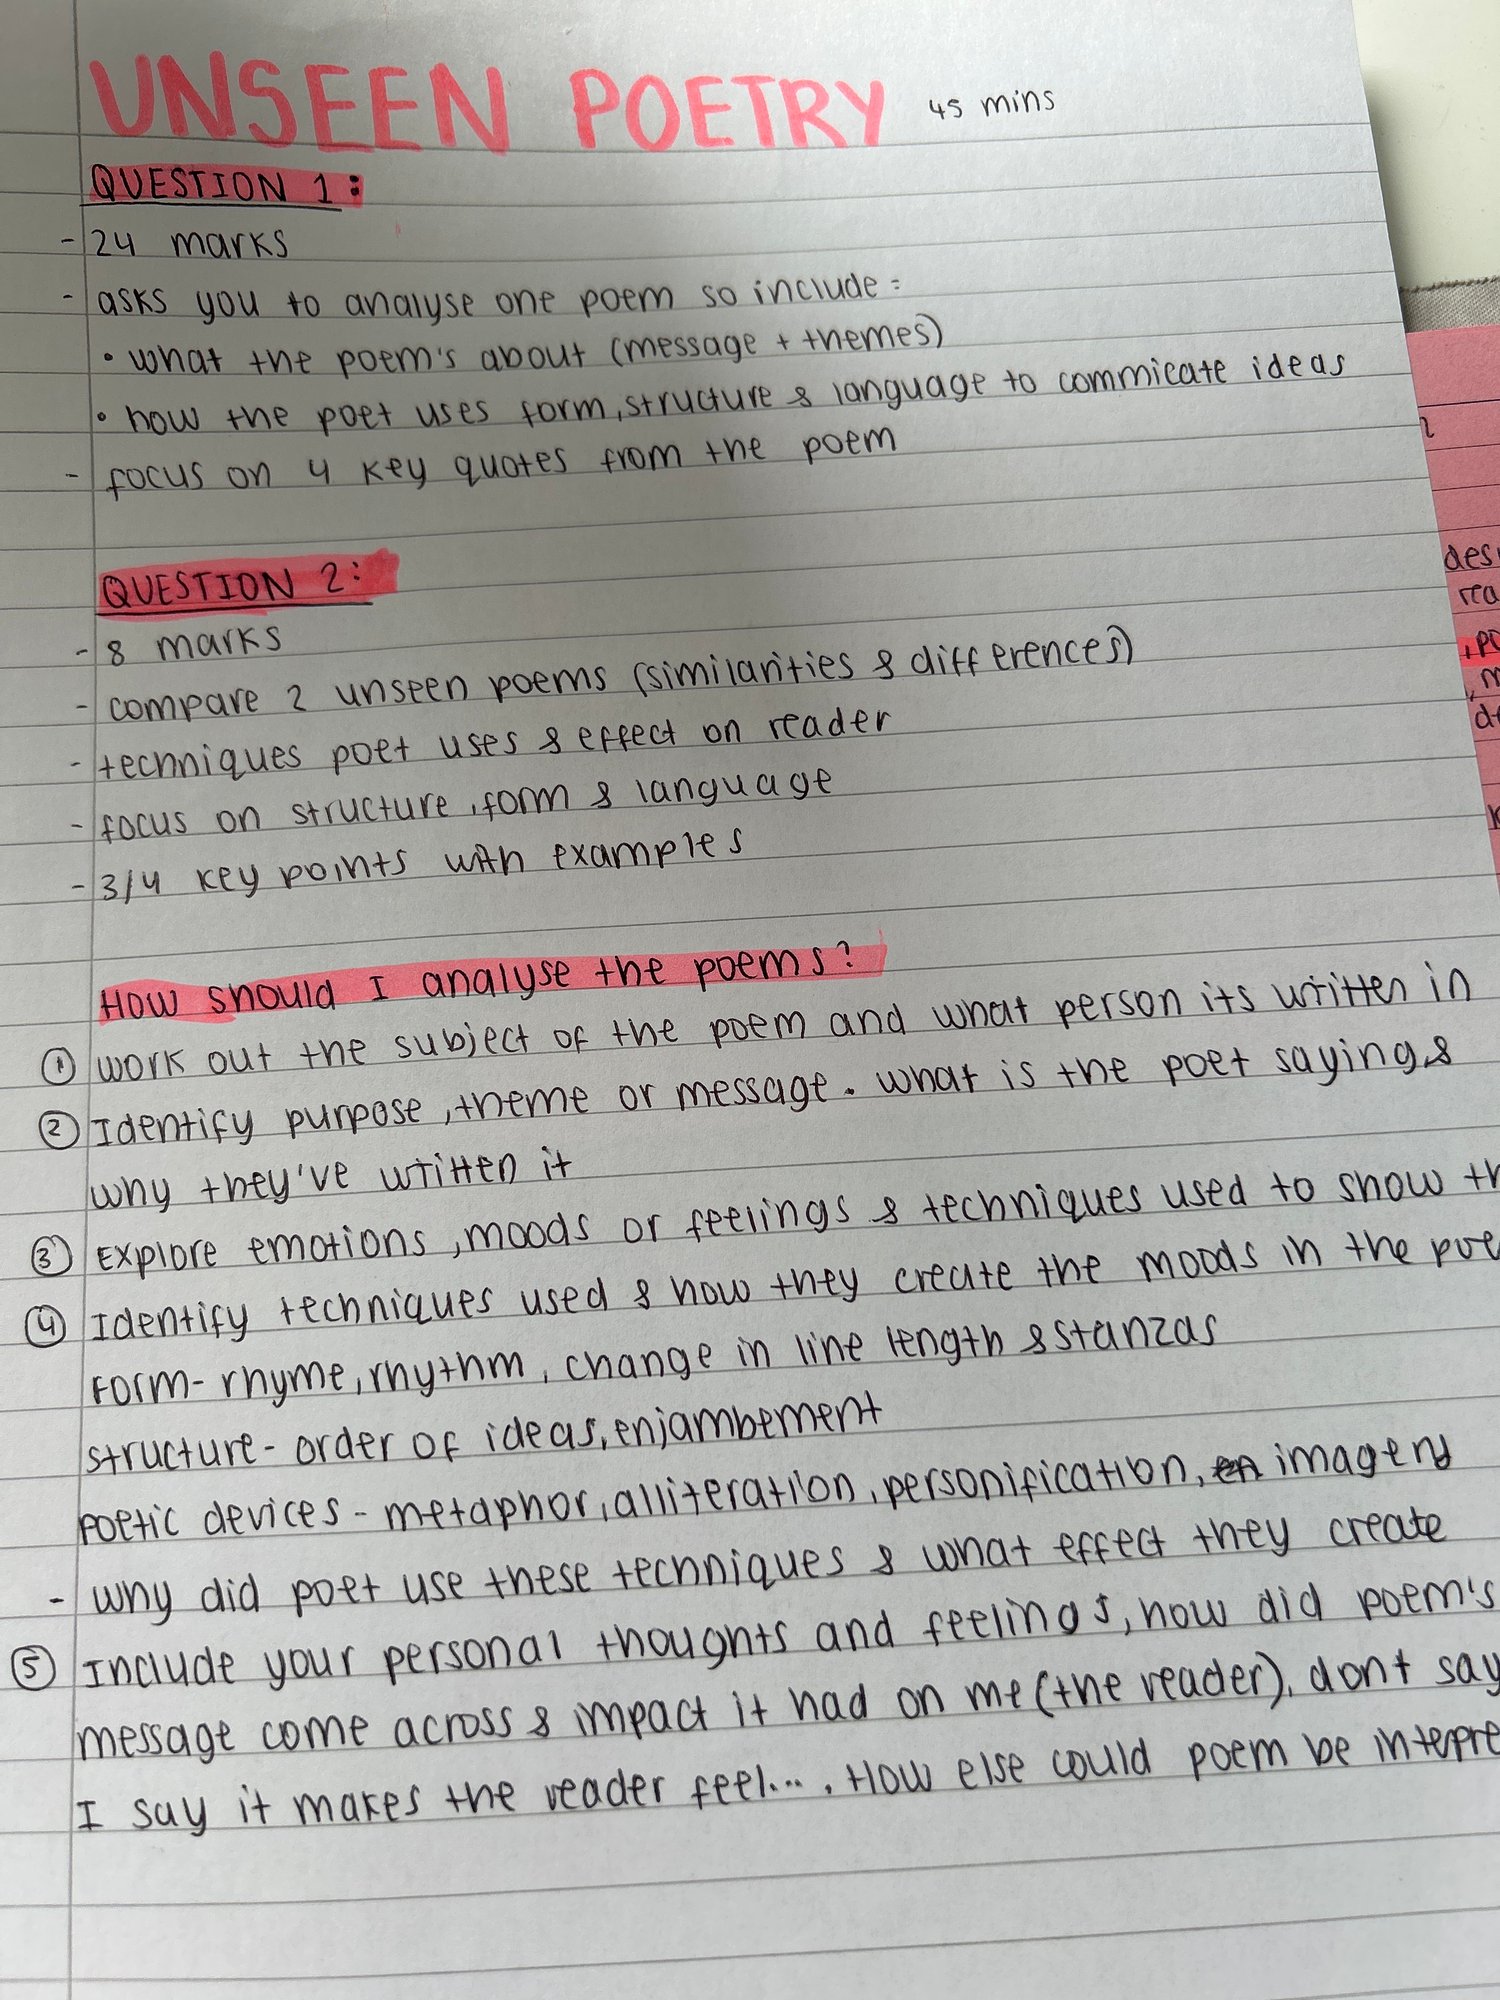 UNSEEN POETRY 45 mins
QUESTION 1:
- 24 marks
- asks you to analyse one poem so include:
• what the poem's about (message + themes)
• how the poet uses form, structure & language to commicate ideas
- focus on 4 key quotes from the poem
QUESTION 2:
- 8 marks
- compare 2 unseen poems (similarities & differences)
- techniques poet uses & effect on reader
- focus on structure, form & language
- 3/4 key points with examples
How should I analyse the poems?
① work out the subject of the poem and what person its written in
② Identify purpose, theme or message. what is the poet saying &
why they've written it
③ Explore emotions, moods or feelings & techniques used to show th
④ Identify techniques used & how they create the moods in the poe
Form - rhyme, rhythm, change in line length & stanzas
structure - order of ideas, enjambement
Poetic devices - metaphor, alliteration, personification, imagery
- why did poet use these techniques & what effect they create
⑤ Include your personal thoughts and feelings, how did poem's
message come across & impact it had on me (the reader). dont say
I say it makes the reader feel.... How else could poem be interpre
des
rea
, po
, m
de